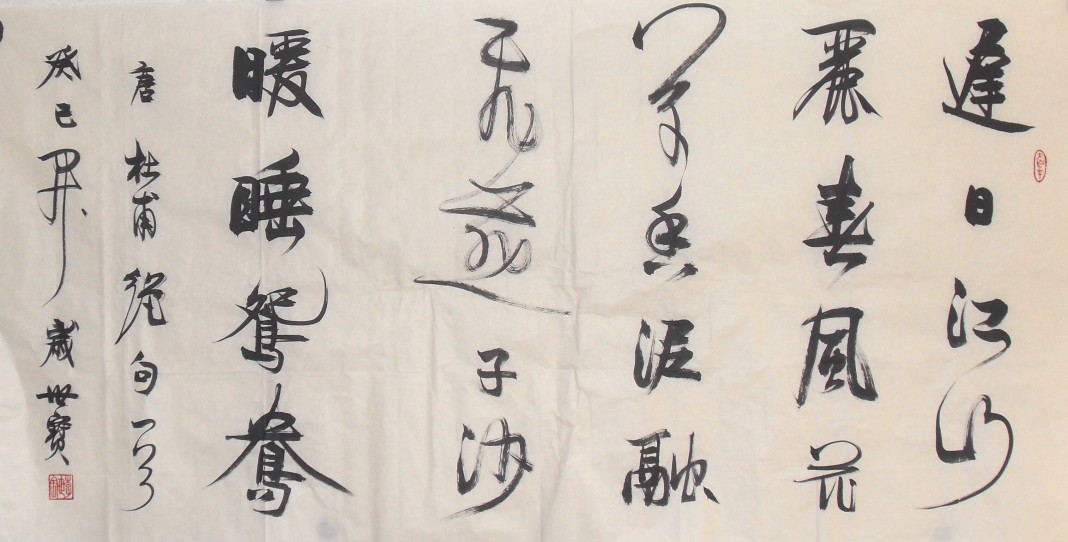 遲日江山
麗春風花
草香泥融
飛燕子沙
暖睡鴛鴦
唐杜甫絕句一首
癸巳歲世寶